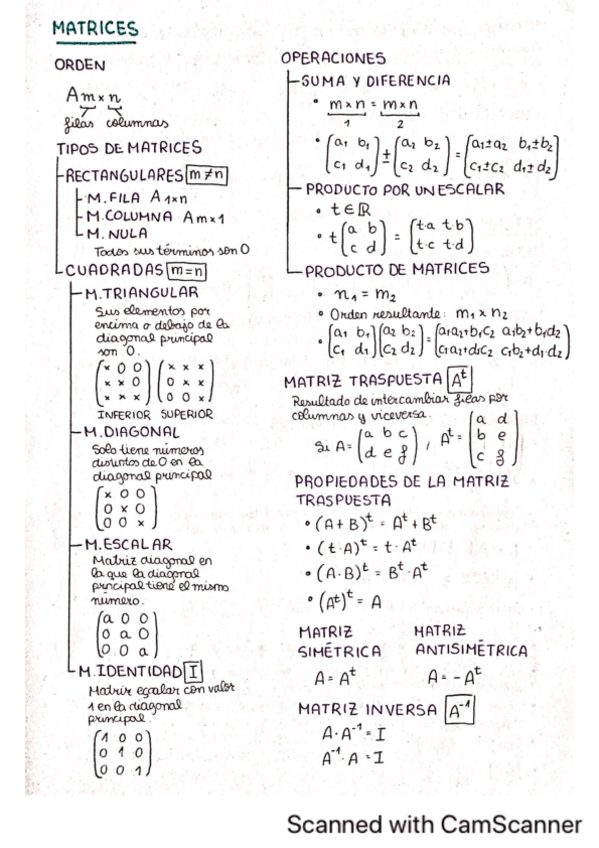 MATRICES
ORDEN
Am×n
filas columnas
TIPOS DE MATRICES
RECTANGULARES m≠n
M.FILA A1×n
M.COLUMNA Am×1
M.NULA
Todos sus términos son 0
CUADRADAS m=n
M.TRIANGULAR
Sus elementos por
encima o debajo de la
diagonal principal
son 0.
(x 0 0) (x x x)
(x x 0) (0 x x)
(x x x) (0 0 x)
INFERIOR SUPERIOR
M.DIAGONAL
Solo tiene números
distintos de 0 en la
diagonal principal
(x 0 0)
(0 x 0)
(0 0 x)
M.ESCALAR
Matriz diagonal en
la que la diagonal
principal tiene el mismo
número.
(a 0 0)
(0 a 0)
(0 0 a)
M.IDENTIDAD I
Matriz escalar con valor
1 en la diagonal
principal.
(1 0 0)
(0 1 0)
(0 0 1)
OPERACIONES
SUMA Y DIFERENCIA
• m×n = m×n
1 2
• (a1 b1) ± (a2 b2) = (a1±a2 b1±b2)
(c1 d1) (c2 d2) (c1±c2 d1±d2)
PRODUCTO POR UN ESCALAR
• t∈ℝ
• t (a b) = (t·a t·b)
(c d) (t·c t·d)
PRODUCTO DE MATRICES
• n1 = m2
• Orden resultante: m1 × n2
• (a1 b1)(a2 b2) = (a1a2+b1c2 a1b2+b1d2)
(c1 d1)(c2 d2) (c1a2+d1c2 c1b2+d1·d2)
MATRIZ TRASPUESTA Aᵗ
Resultado de intercambiar filas por
columnas y viceversa.
Si A= (a b c) , Aᵗ= (a d)
(d e f) (b e)
(c f)
PROPIEDADES DE LA MATRIZ
TRASPUESTA
• (A+B)ᵗ = Aᵗ+Bᵗ
• (t·A)ᵗ = t·Aᵗ
• (A·B)ᵗ = Bᵗ·Aᵗ
• (Aᵗ)ᵗ = A
MATRIZ
SIMÉTRICA
A=Aᵗ
MATRIZ
ANTISIMÉTRICA
A=-Aᵗ
MATRIZ INVERSA A⁻¹
A·A⁻¹=I
A⁻¹·A=I
Scanned with CamScanner